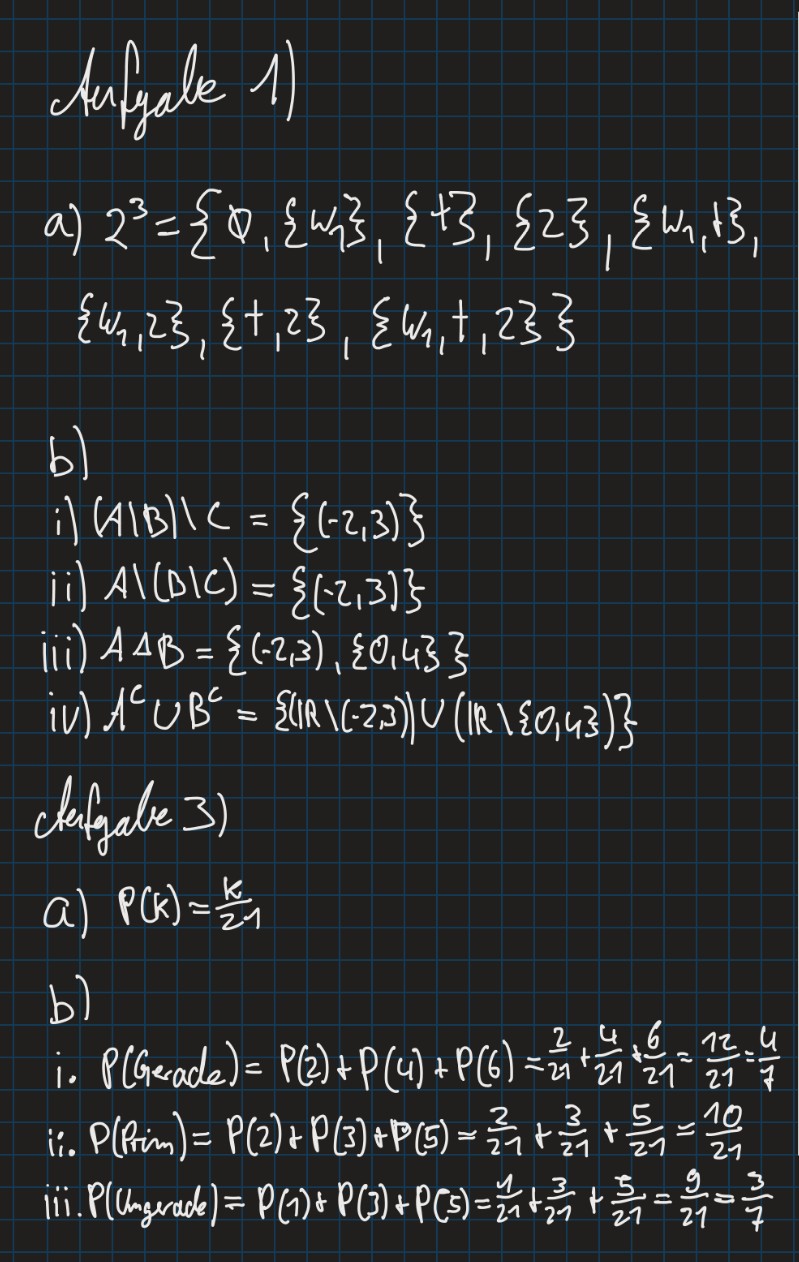 Aufgabe 1)
a) 2³ = {∅, {w₁}, {t}, {2}, {w₁,t},
{w₁,2}, {t,2}, {w₁,t,2}}
b)
i) (A\B)\C = {(-2,3)}
ii) A\(B\C) = {(-2,3)}
iii) A Δ B = {(-2,3), {0,4}}
iv) Aᶜ ∪ Bᶜ = {(ℝ\(-2,3)) ∪ (ℝ\{0,4})}
Aufgabe 3)
a) P(k) = k/21
b)
i. P(Gerade) = P(2) + P(4) + P(6) = 2/21 + 4/21 + 6/21 = 12/21 = 4/7
ii. P(Prim) = P(2) + P(3) + P(5) = 2/21 + 3/21 + 5/21 = 10/21
iii. P(Ungerade) = P(1) + P(3) + P(5) = 1/21 + 3/21 + 5/21 = 9/21 = 3/7